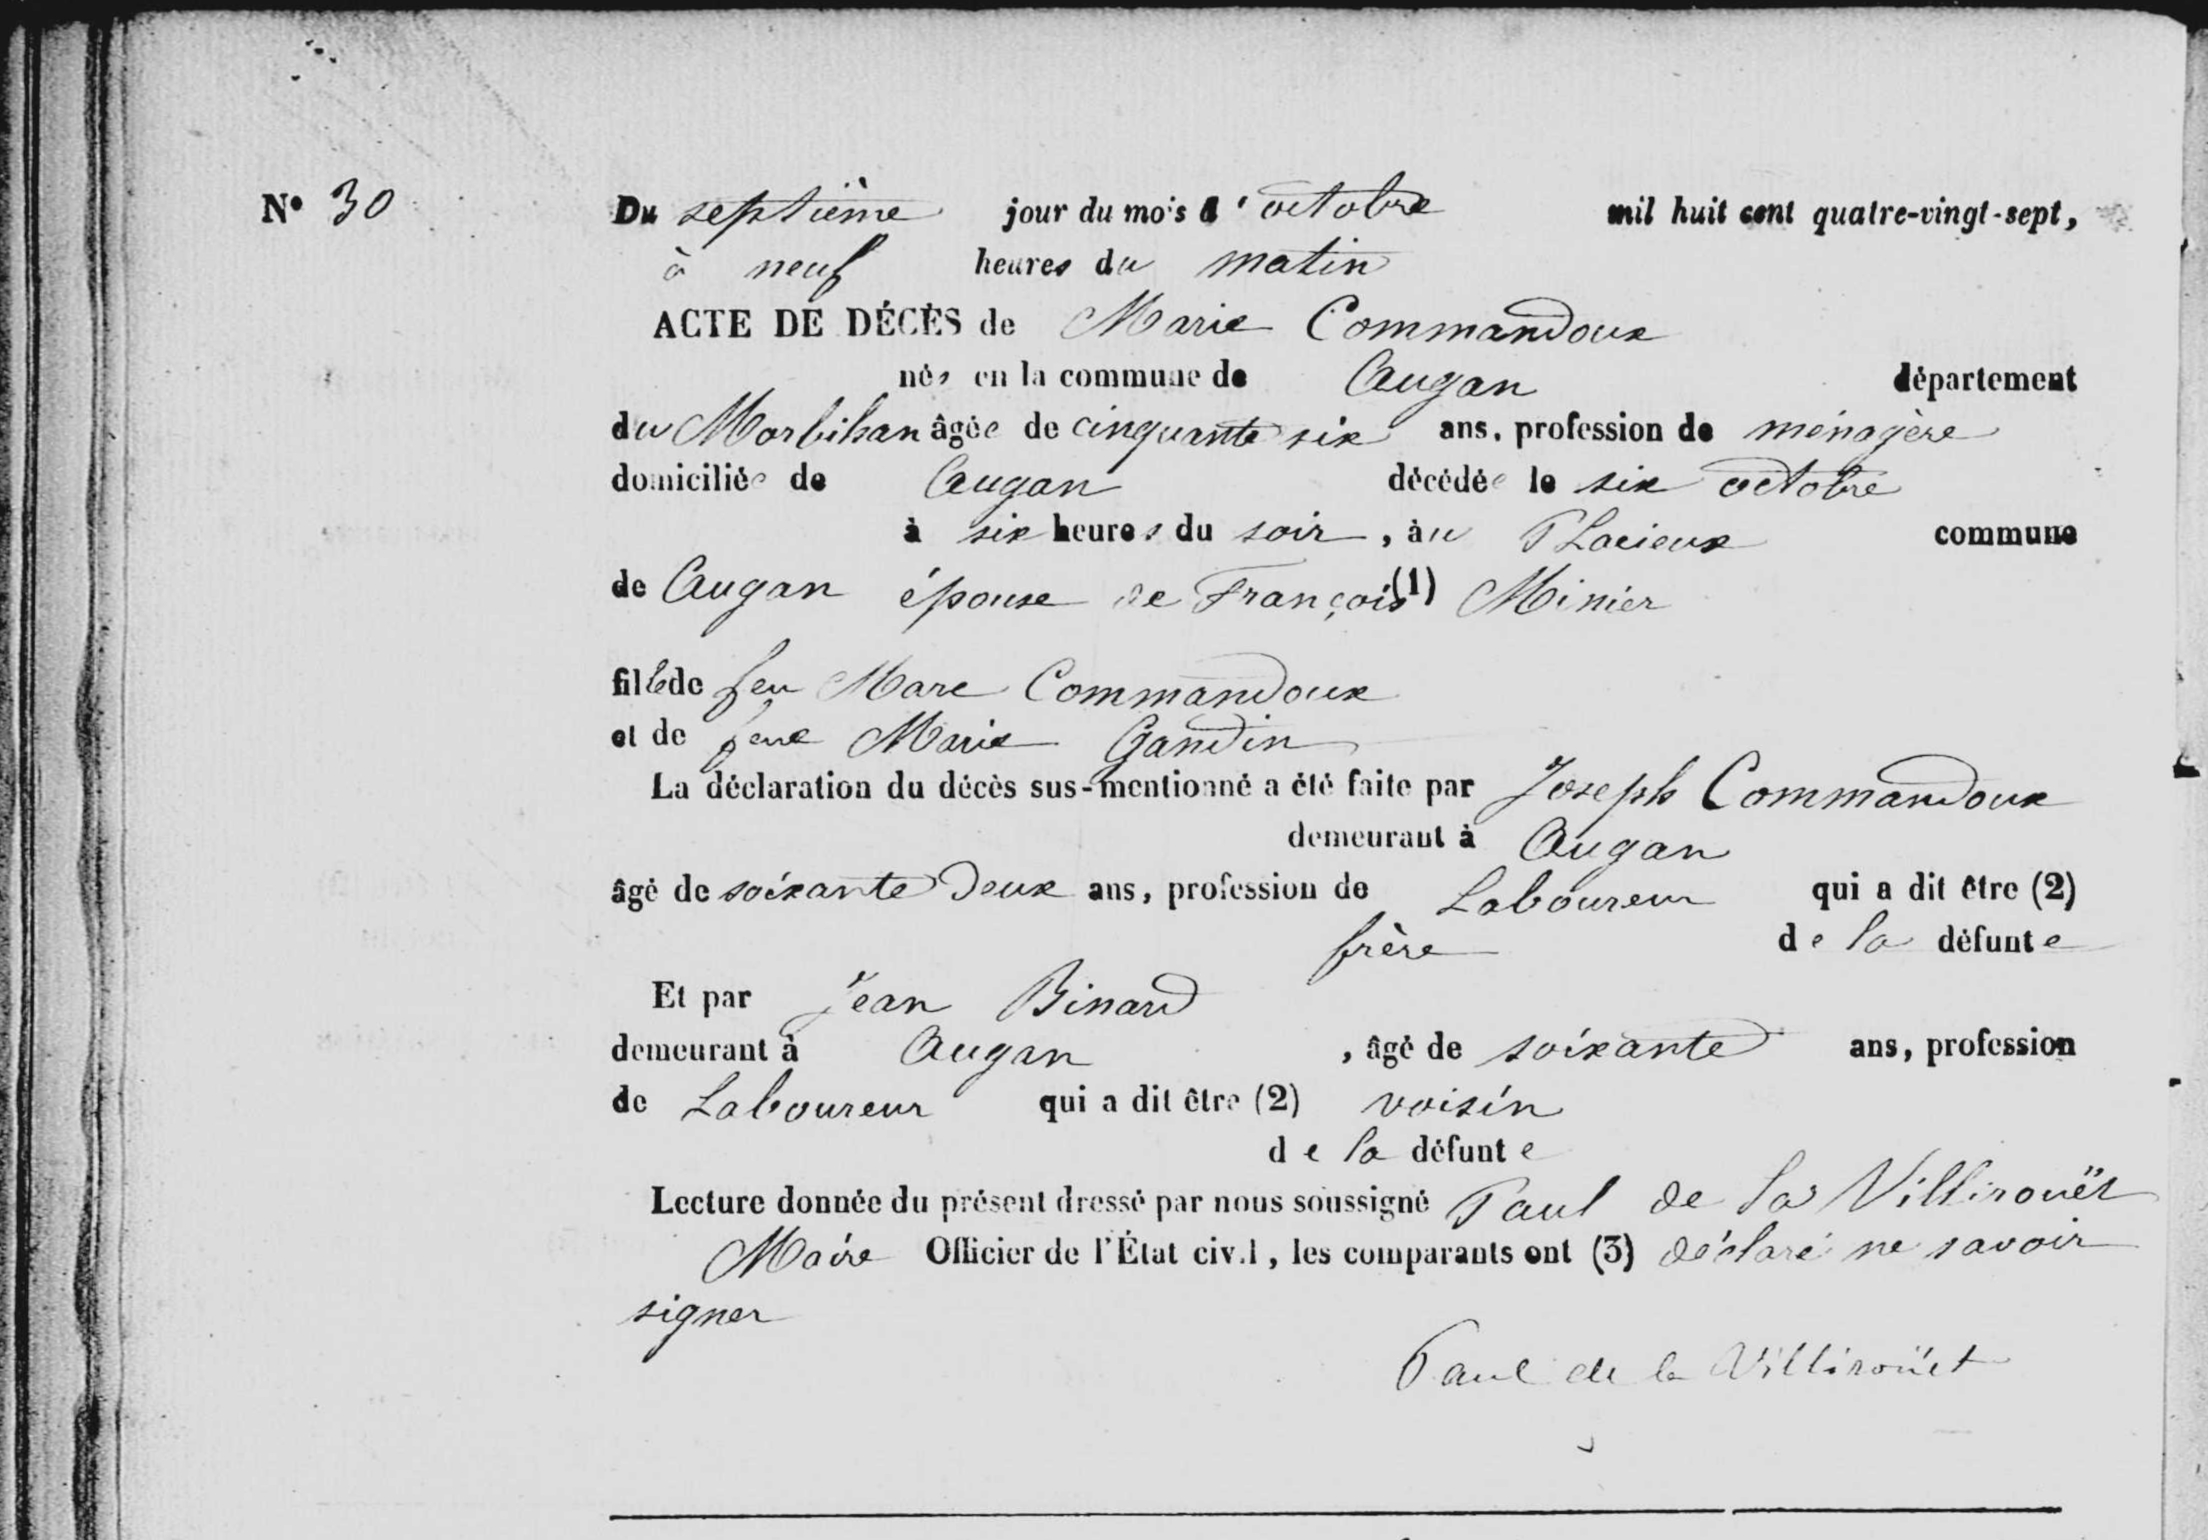 N° 30
Du septième jour du mois d'octobre mil huit cent quatre-vingt-sept,
à neuf heures du matin
ACTE DE DÉCÈS de Marie Commandoux
née en la commune de Augan département
du Morbihan âgée de cinquante six ans, profession de ménagère
domiciliée de Augan décédée le six octobre
à six heures du soir, àu Placieux commune
de Augan épouse de François (1) Minier
fillede feu Marc Commandoux
et de feue Marie Gandin
La déclaration du décès sus-mentionné a été faite par Joseph Commandoux
demeurant à Augan
âgé de soixante deux ans, profession de Laboureur qui a dit être (2)
frère de la défunte
Et par Jean Binard
demeurant à Augan, âgé de soixante ans, profession
de Laboureur qui a dit être (2) voisin
de la défunte
Lecture donnée du présent dressé par nous soussigné Paul de la Villirouët
Maire Officier de l'État civil, les comparants ont (3) déclaré ne savoir
signer
Paul de la Villirouët